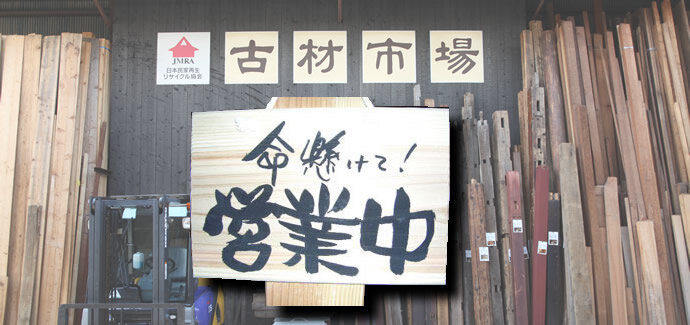 JMRA
日本民家再生
リサイクル協会
古材市場
命懸けて!
営業中